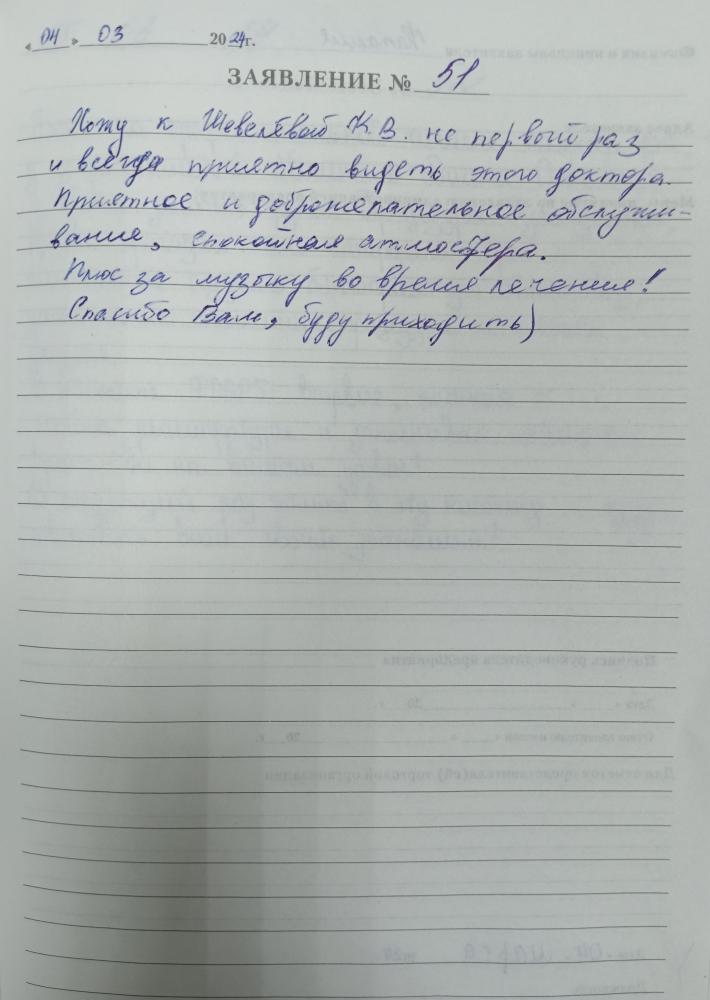 « 04 » 03 2024 г.
ЗАЯВЛЕНИЕ № 51
Хожу к Шевелёвой К.В. не первый раз
и всегда приятно видеть этого доктора.
Приятное и доброжелательное обслужи-
вание, спокойная атмосфера.
Плюс за музыку во время лечения!
Спасибо Вам, буду приходить)